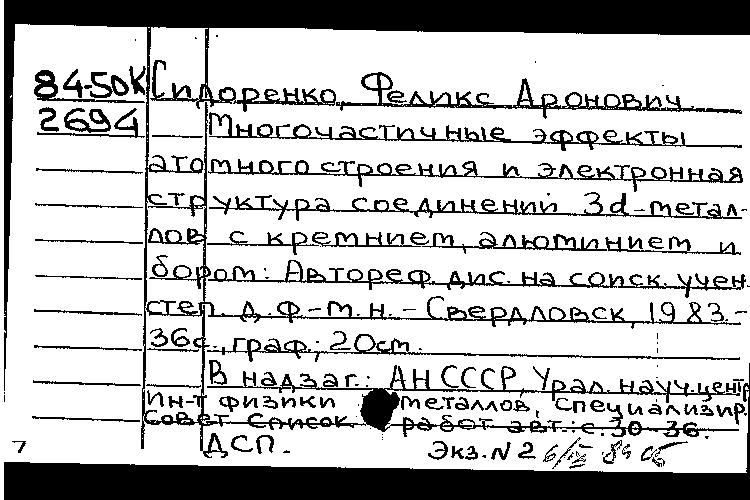 84-50К Сидоренко, Феликс Аронович.
2694 Многочастичные эффекты
атомного строения и электронная
структура соединений 3d-метал-
лов с кремнием, алюминием и
бором: Автореф. дис. на соиск. учен.
степ. д. ф-м. н. - Свердловск, 1983.-
36с., граф.; 20см.
В надзаг.: АН СССР, Урал. науч. центр,
ин-т физики металлов, специализир.
совет Список работ авт.: с. 30-36.
ДСП. Экз. N 2
7